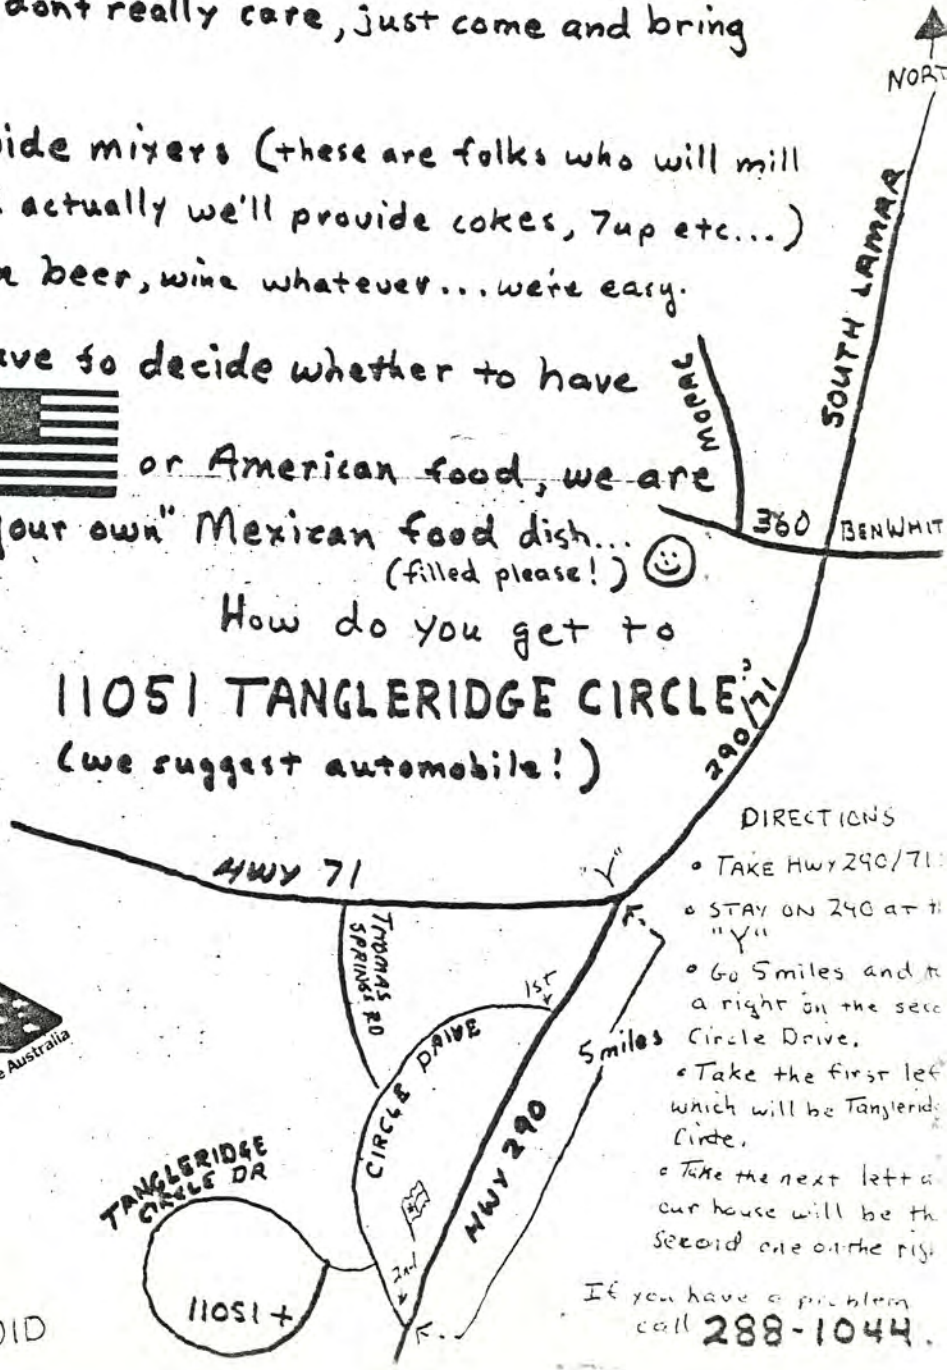 dont really care, just come and bring
NORT
ide mixers (these are folks who will mill
actually we'll provide cokes, 7up etc...)
beer, wine whatever... we're easy.
SOUTH LAMAR
ave to decide whether to have
MOPAC
or American food, we are
360
BEN WHIT
your own" Mexican food dish...
(filled please!)
How do you get to
11051 TANGLERIDGE CIRCLE?
290/71
(we suggest automobile!)
HWY 71
"Y"
THOMAS
SPRINGS RD
1ST
CIRCLE DRIVE
5 miles
HWY 290
2nd
TANGLERIDGE
CIRCLE DR
11051 +
e Australia
OID
DIRECTIONS
• TAKE HWY 290/71
• STAY ON 290 AT
"Y"
• Go 5 miles and
a right on the seco
Circle Drive.
• Take the first lef
which will be Tanglerid
Circle.
• Take the next left a
our house will be th
second one on the rig
If you have a problem
call 288-1044.